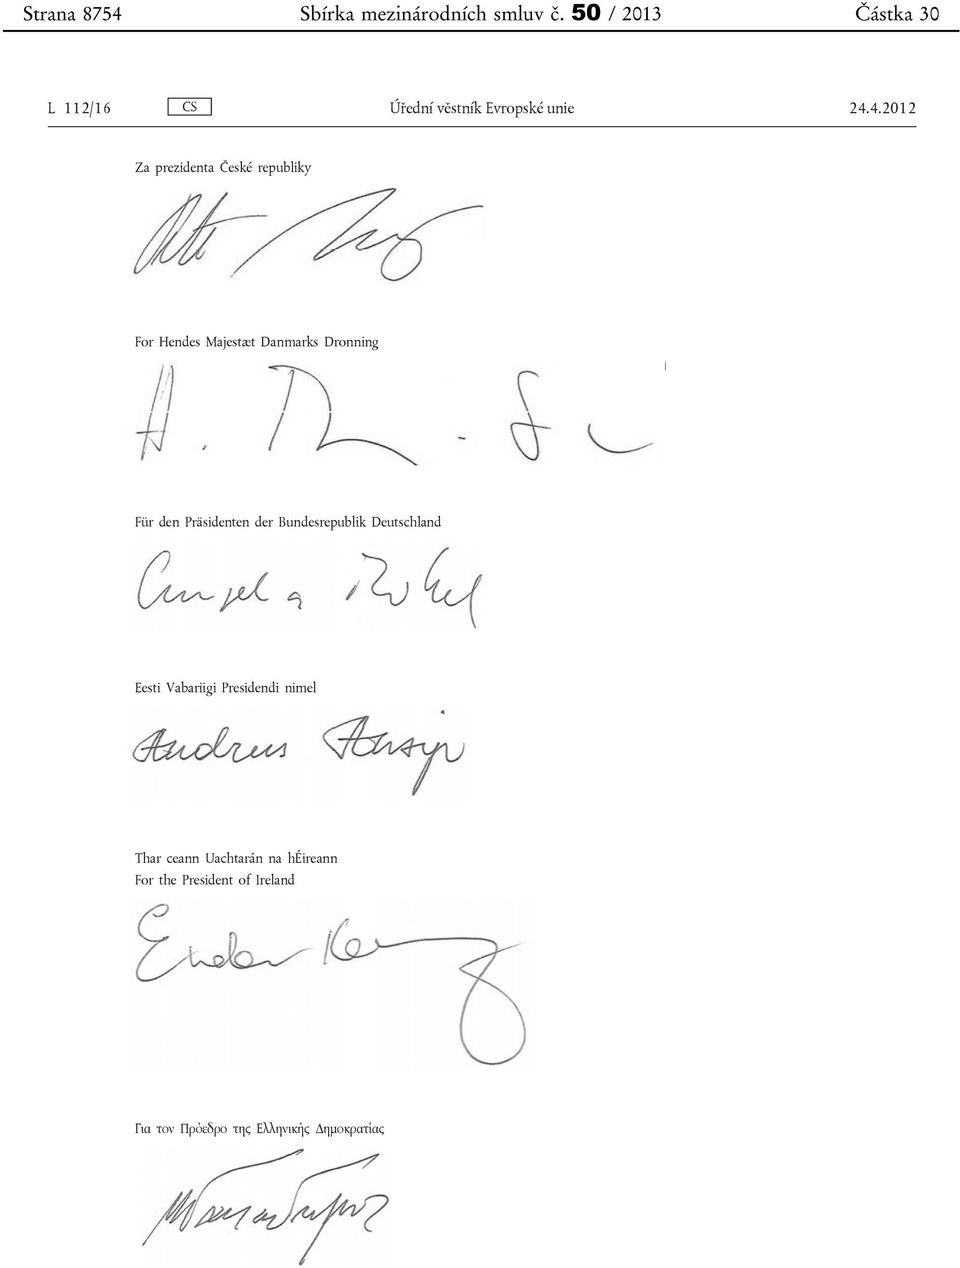 Strana 8754 Sbírka mezinárodních smluv č. 50 / 2013 Částka 30
L 112/16 CS Úřední věstník Evropské unie 24.4.2012
Za prezidenta České republiky
For Hendes Majestæt Danmarks Dronning
Für den Präsidenten der Bundesrepublik Deutschland
Angela Merkel
Eesti Vabariigi Presidendi nimel
Andrus Ansip
Thar ceann Uachtarán na hÉireann
For the President of Ireland
Enda Kenny
Για τον Πρόεδρο της Ελληνικής Δημοκρατίας